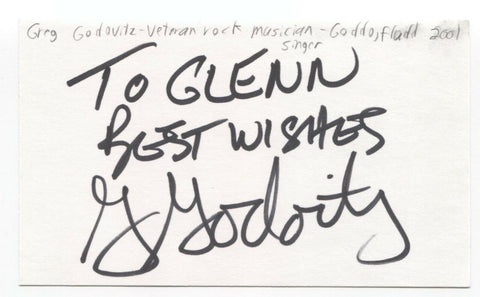 Greg Godovitz-Vetran rock musician - Goddo, fludd 2001
singer
TO GLENN
BEST WISHES
G Godovitz